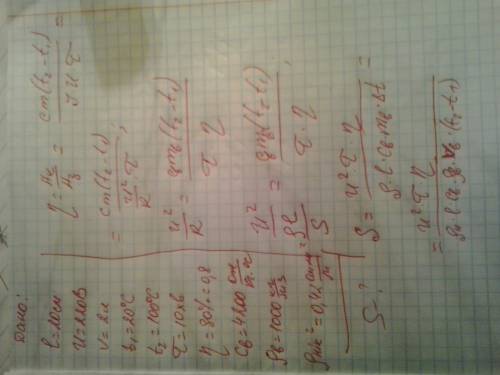 Дано:
l=20см
U=220В
V=2л
t₁=20°C
t₂=100°C
τ=10хв
η=80%=0,8
Cв=4200 Дж/кг·°C
ρв=1000 кг/м³
ρніх=0,42 Ом·мм²/м
S-?
η = Aк/Aз = cm(t₂-t₁)/IUτ =
= cm(t₂-t₁)/(U²/R · τ);
U²/R = cmв(t₂-t₁)/τ · η
U²/(ρl/S) = cmв(t₂-t₁)/τ·η;
S = U²·τ·η/ρ·l·Cв·mв·Δt =
= U²·τ·η/ρ·l·Cв·ρв·Vв·(t₂-t₁)